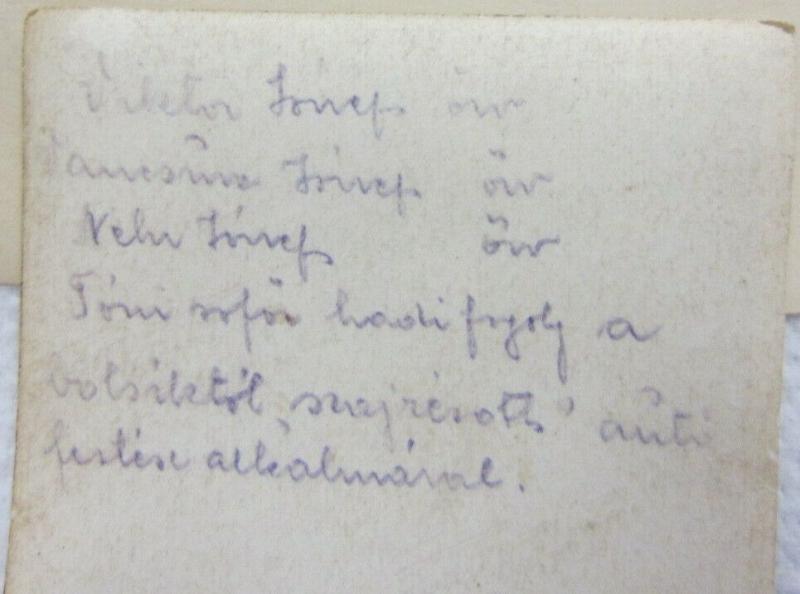 Viktor József őrv
József őrv
József őrv
Tóni soför hadi fogoly a
bolsiktól „szajrésott" autó
festése alkalmával.